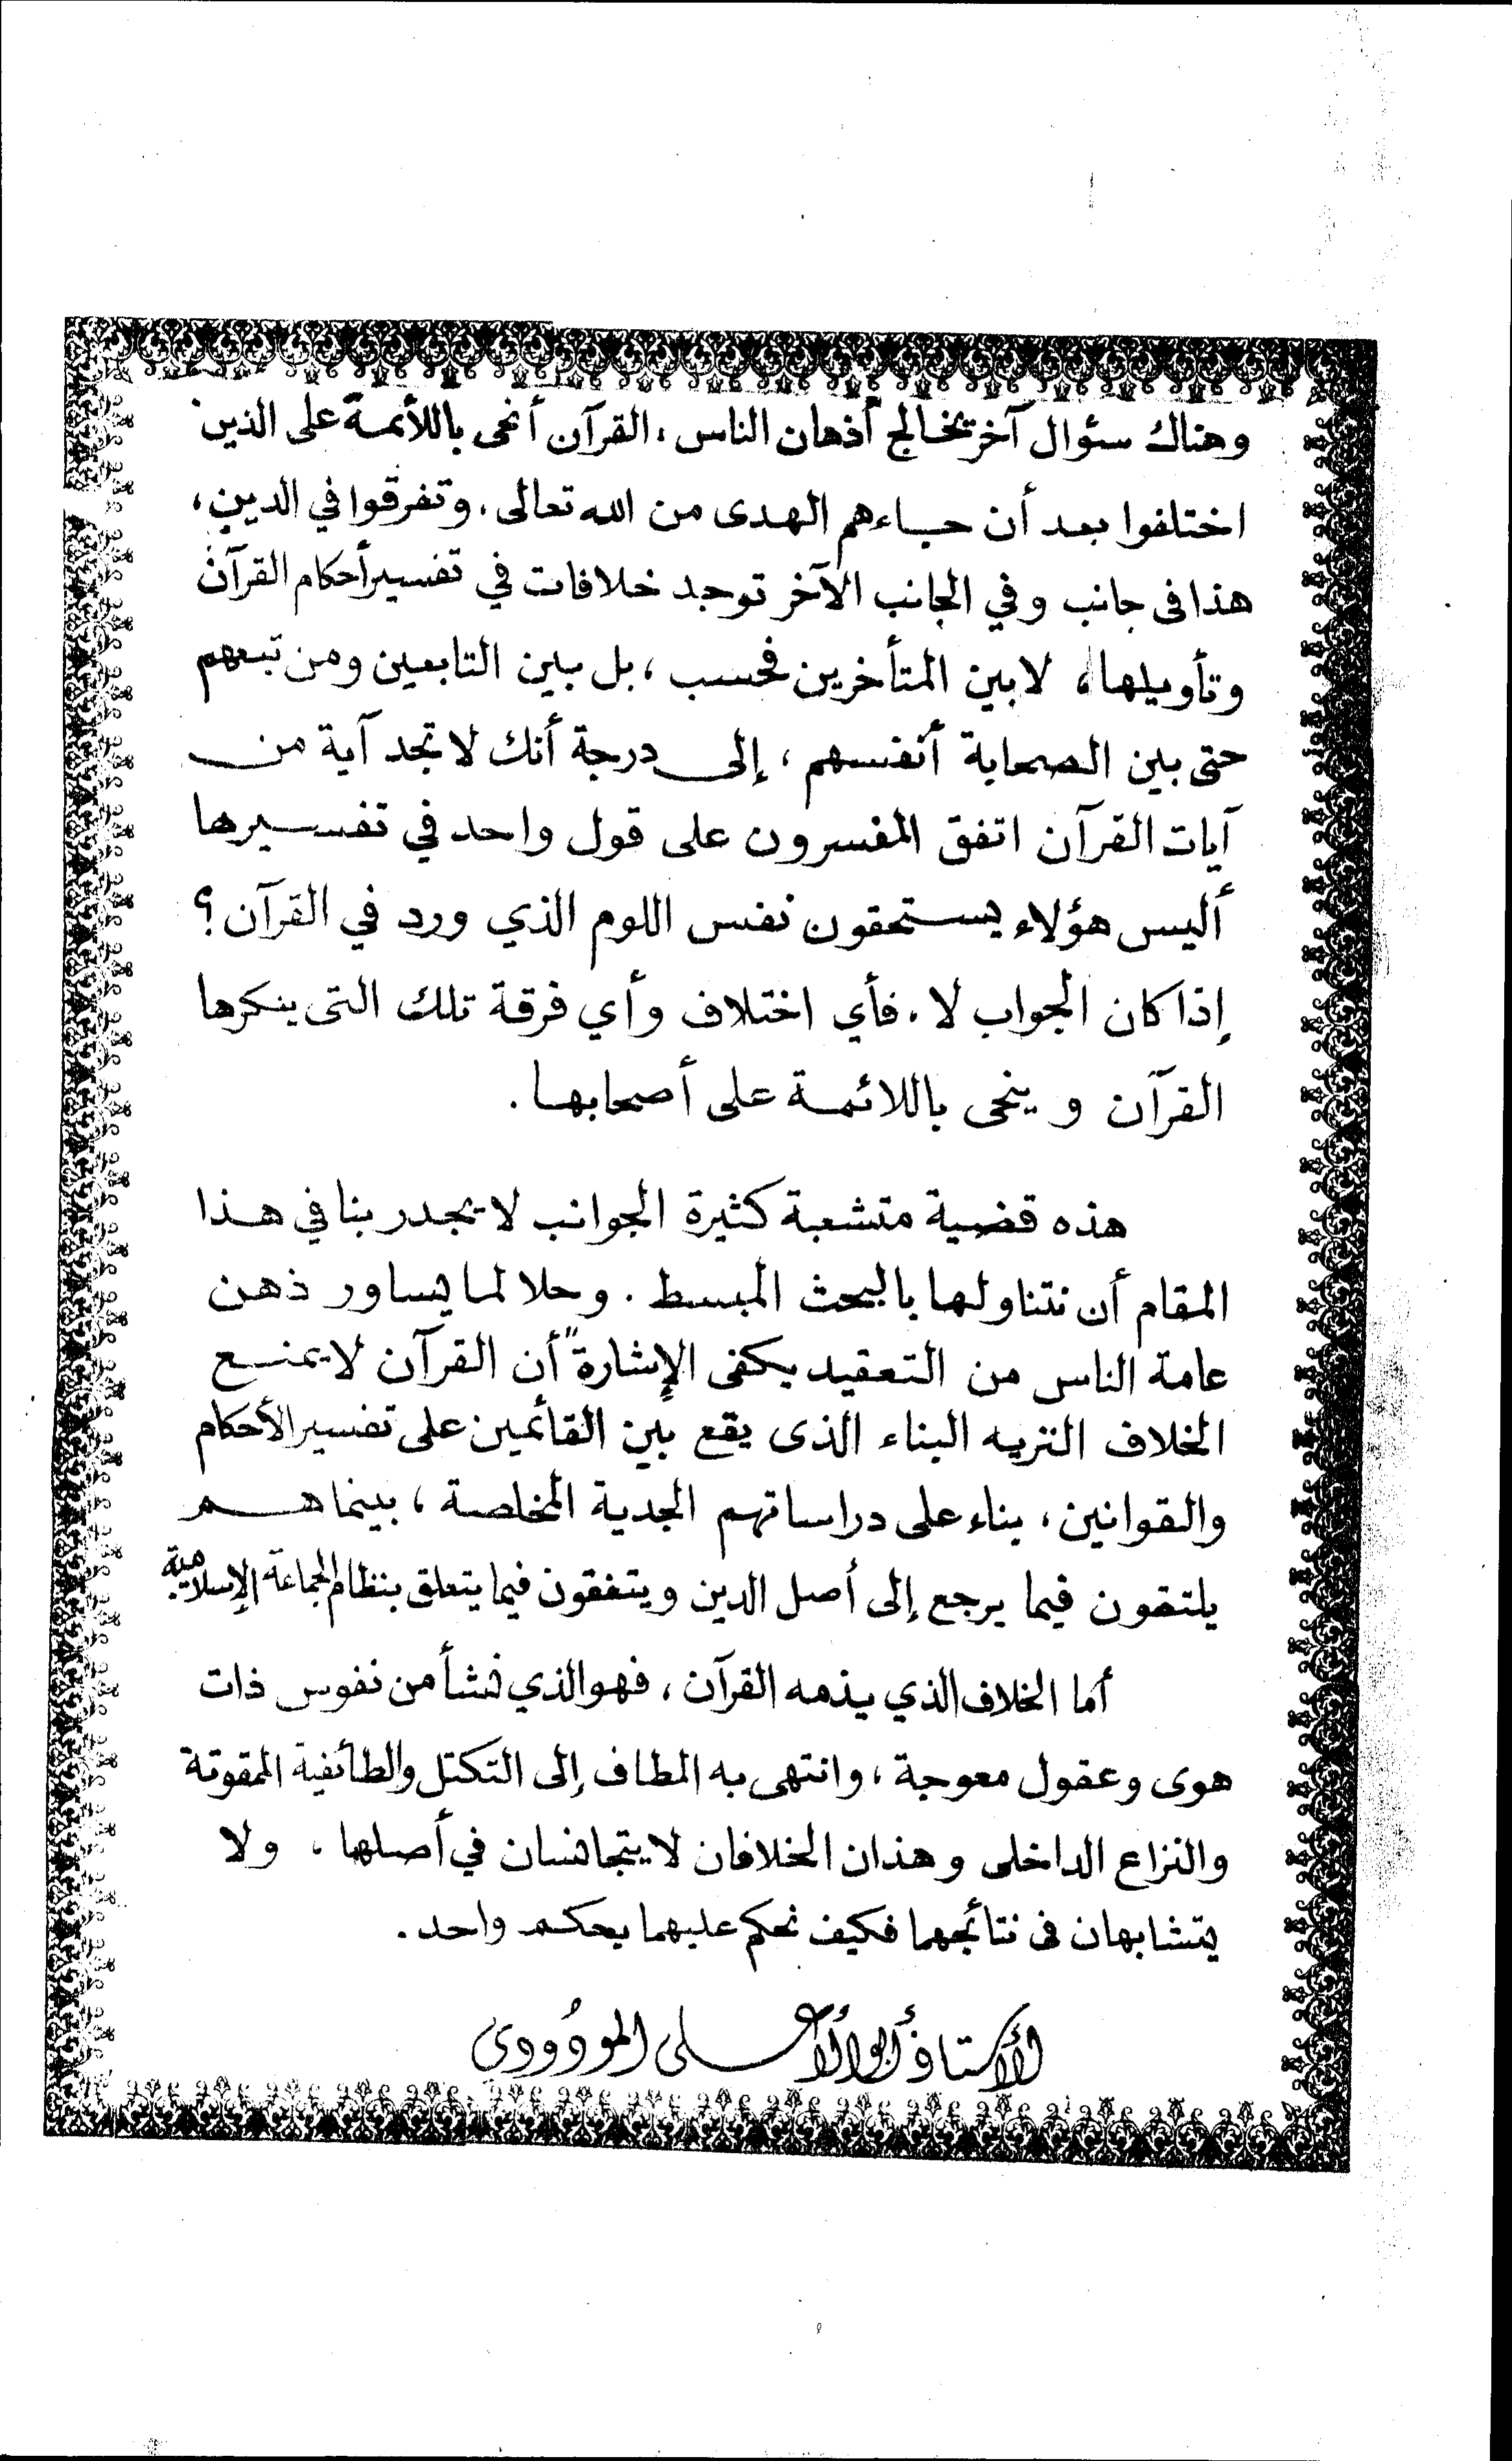 وهناك سئوال آخر يخالج أذهان الناس، القرآن أنحى باللأئمة على الذين
اختلفوا بعد أن جاءهم الهدى من الله تعالى، وتفرقوا في الدين،
هذا فى جانب وفي الجانب الآخر توجد خلافات في تفسير أحكام القرآن
وتأويلها، لا بين المتأخرين فحسب، بل بين التابعين ومن تبعهم
حتى بين الصحابة أنفسهم، إلى درجة أنك لا تجد آية من
آيات القرآن اتفق المفسرون على قول واحد في تفسيرها
أليس هؤلاء يستحقون نفس اللوم الذي ورد في القرآن؟
إذا كان الجواب لا، فأي اختلاف وأي فرقة تلك التى ينكرها
القرآن وينحى باللائمة على أصحابها.
هذه قضية متشعبة كثيرة الجوانب لا يجدر بنا في هذا
المقام أن نتناولها بالبحث المبسط. وحلا لما يساور ذهن
عامة الناس من التعقيد يكفى الإشارة" أن القرآن لا يمنع
الخلاف النزيه البناء الذى يقع بين القائمين على تفسير الأحكام
والقوانين، بناء على دراساتهم الجدية المخلصة، بينما هم
يلتقون فيما يرجع إلى أصل الدين ويتفقون فيما يتعلق بنظام الجماعة الإسلامية
أما الخلاف الذي يذمه القرآن، فهو الذي نشأ من نفوس ذات
هوى وعقول معوجة، وانتهى به المطاف إلى التكتل والطائفية الممقوتة
والنزاع الداخلى وهذان الخلافان لا يتجانسان في أصلها، ولا
يتشابهان فى نتائجهما فكيف نحكم عليهما بحكم واحد.
الأستاذ أبو الأعلى المودُودي